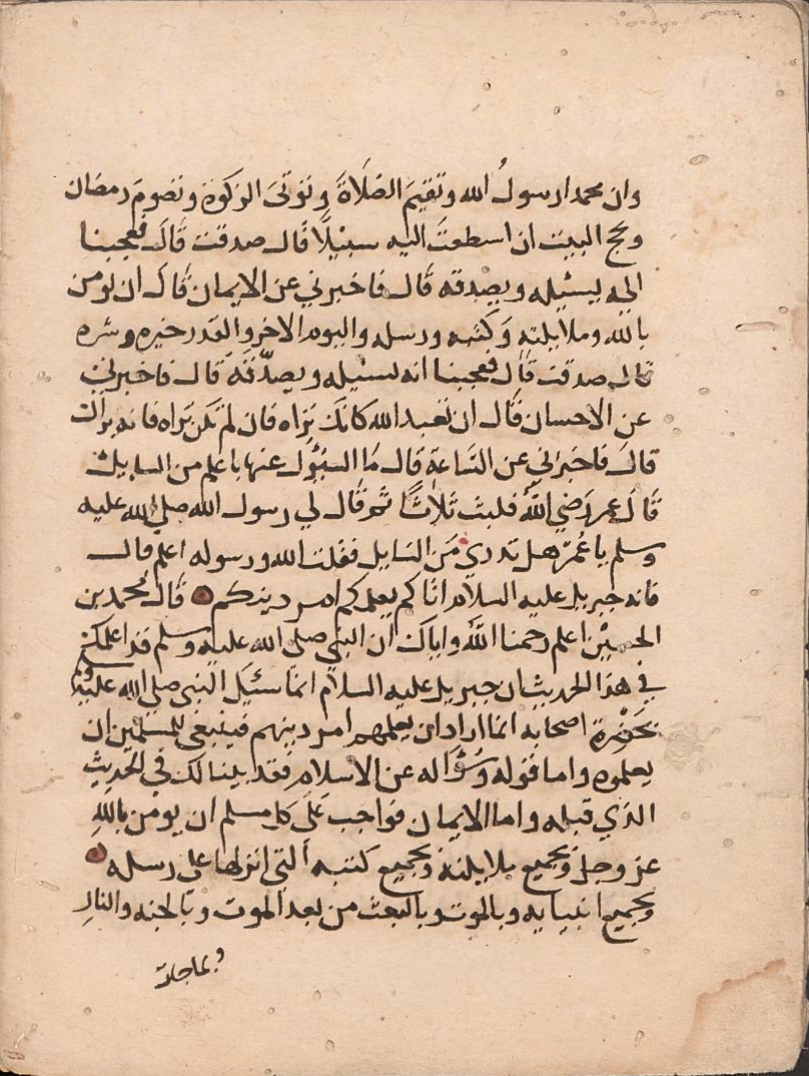 وان محمدا رسولُ الله وتقيمَ الصَلَاةَ وتوتىَ الزكوة وتصومَ رمضان
وتحج البيت ان اسطعتَ اليه سبيْلًا قال صدقت قالَ فعجبنا
اليه يسئيله ويصدقه قال فاخبرني عن الايمان قال ان تومن
بالله وملايلته وَكتبه ورسله واليوم الاخر والقدر خيره وشره
قال صدقت قال فعجبنا انه يسئيله ويصدّقه قال فاخبرني
عن الاحسان قال ان تعبد الله كانك تراه فان لم تكن تراه فانه يراك
قالَ فاخبرَني عن السَاعة قال مَا المسؤل عنها باعلم من السايل
قَالَ عمر رَضي اللّه فلبث ثلَاثًا ثم قال لي رسول الله صلى الله عليه
وسلم يا عُمرَ هل تدري مَن السَايل فقلت الله ورسوله اعلم قال
فانه جبريل عليه السلام اتاكم يعلمكم امر دينكم ۝ قال محمد بن
الحسيْن اعلم رحمنا اللّه واياك ان النبي صلى الله عليه وسلم قد اعلمك
في هذا الحديث ان جبريل عليه السلام انما سئيَل النبي صلى الله عليه وسلم
بحَضْرة اصحابه انما اراد ان يعلمهم امر دينهم فينبغي للمسلمين ان
يعلموه واما قوله وَسُؤاله عن الاسلام فقد بينا لك في الحديث
الذي قبله واما الايمان فواجب عَلى كل مسلم ان يومن باللهِ
عز وجل وَبجميع ملايلته وبجميع كتبه التي انزلها على رسله ۝
وبجميع انبيايه وبالموت وبالبعث من بعد الموت وبالجنه والنارِ
وبما جات